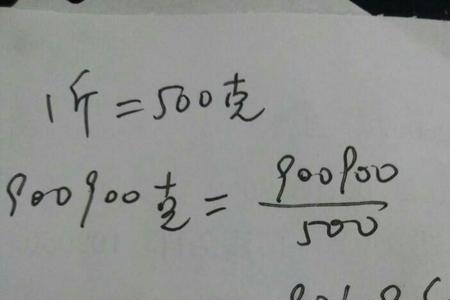 1斤=500克
900900克=900900
500